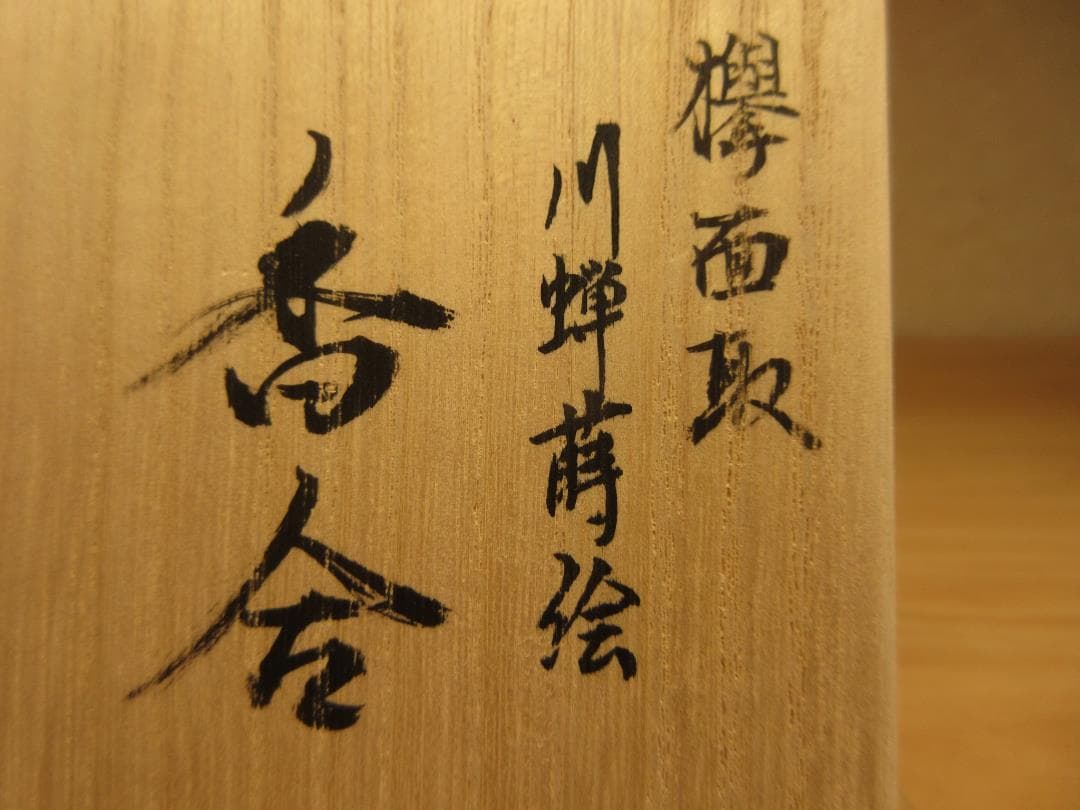 欅面取
川蝉蒔絵
香合